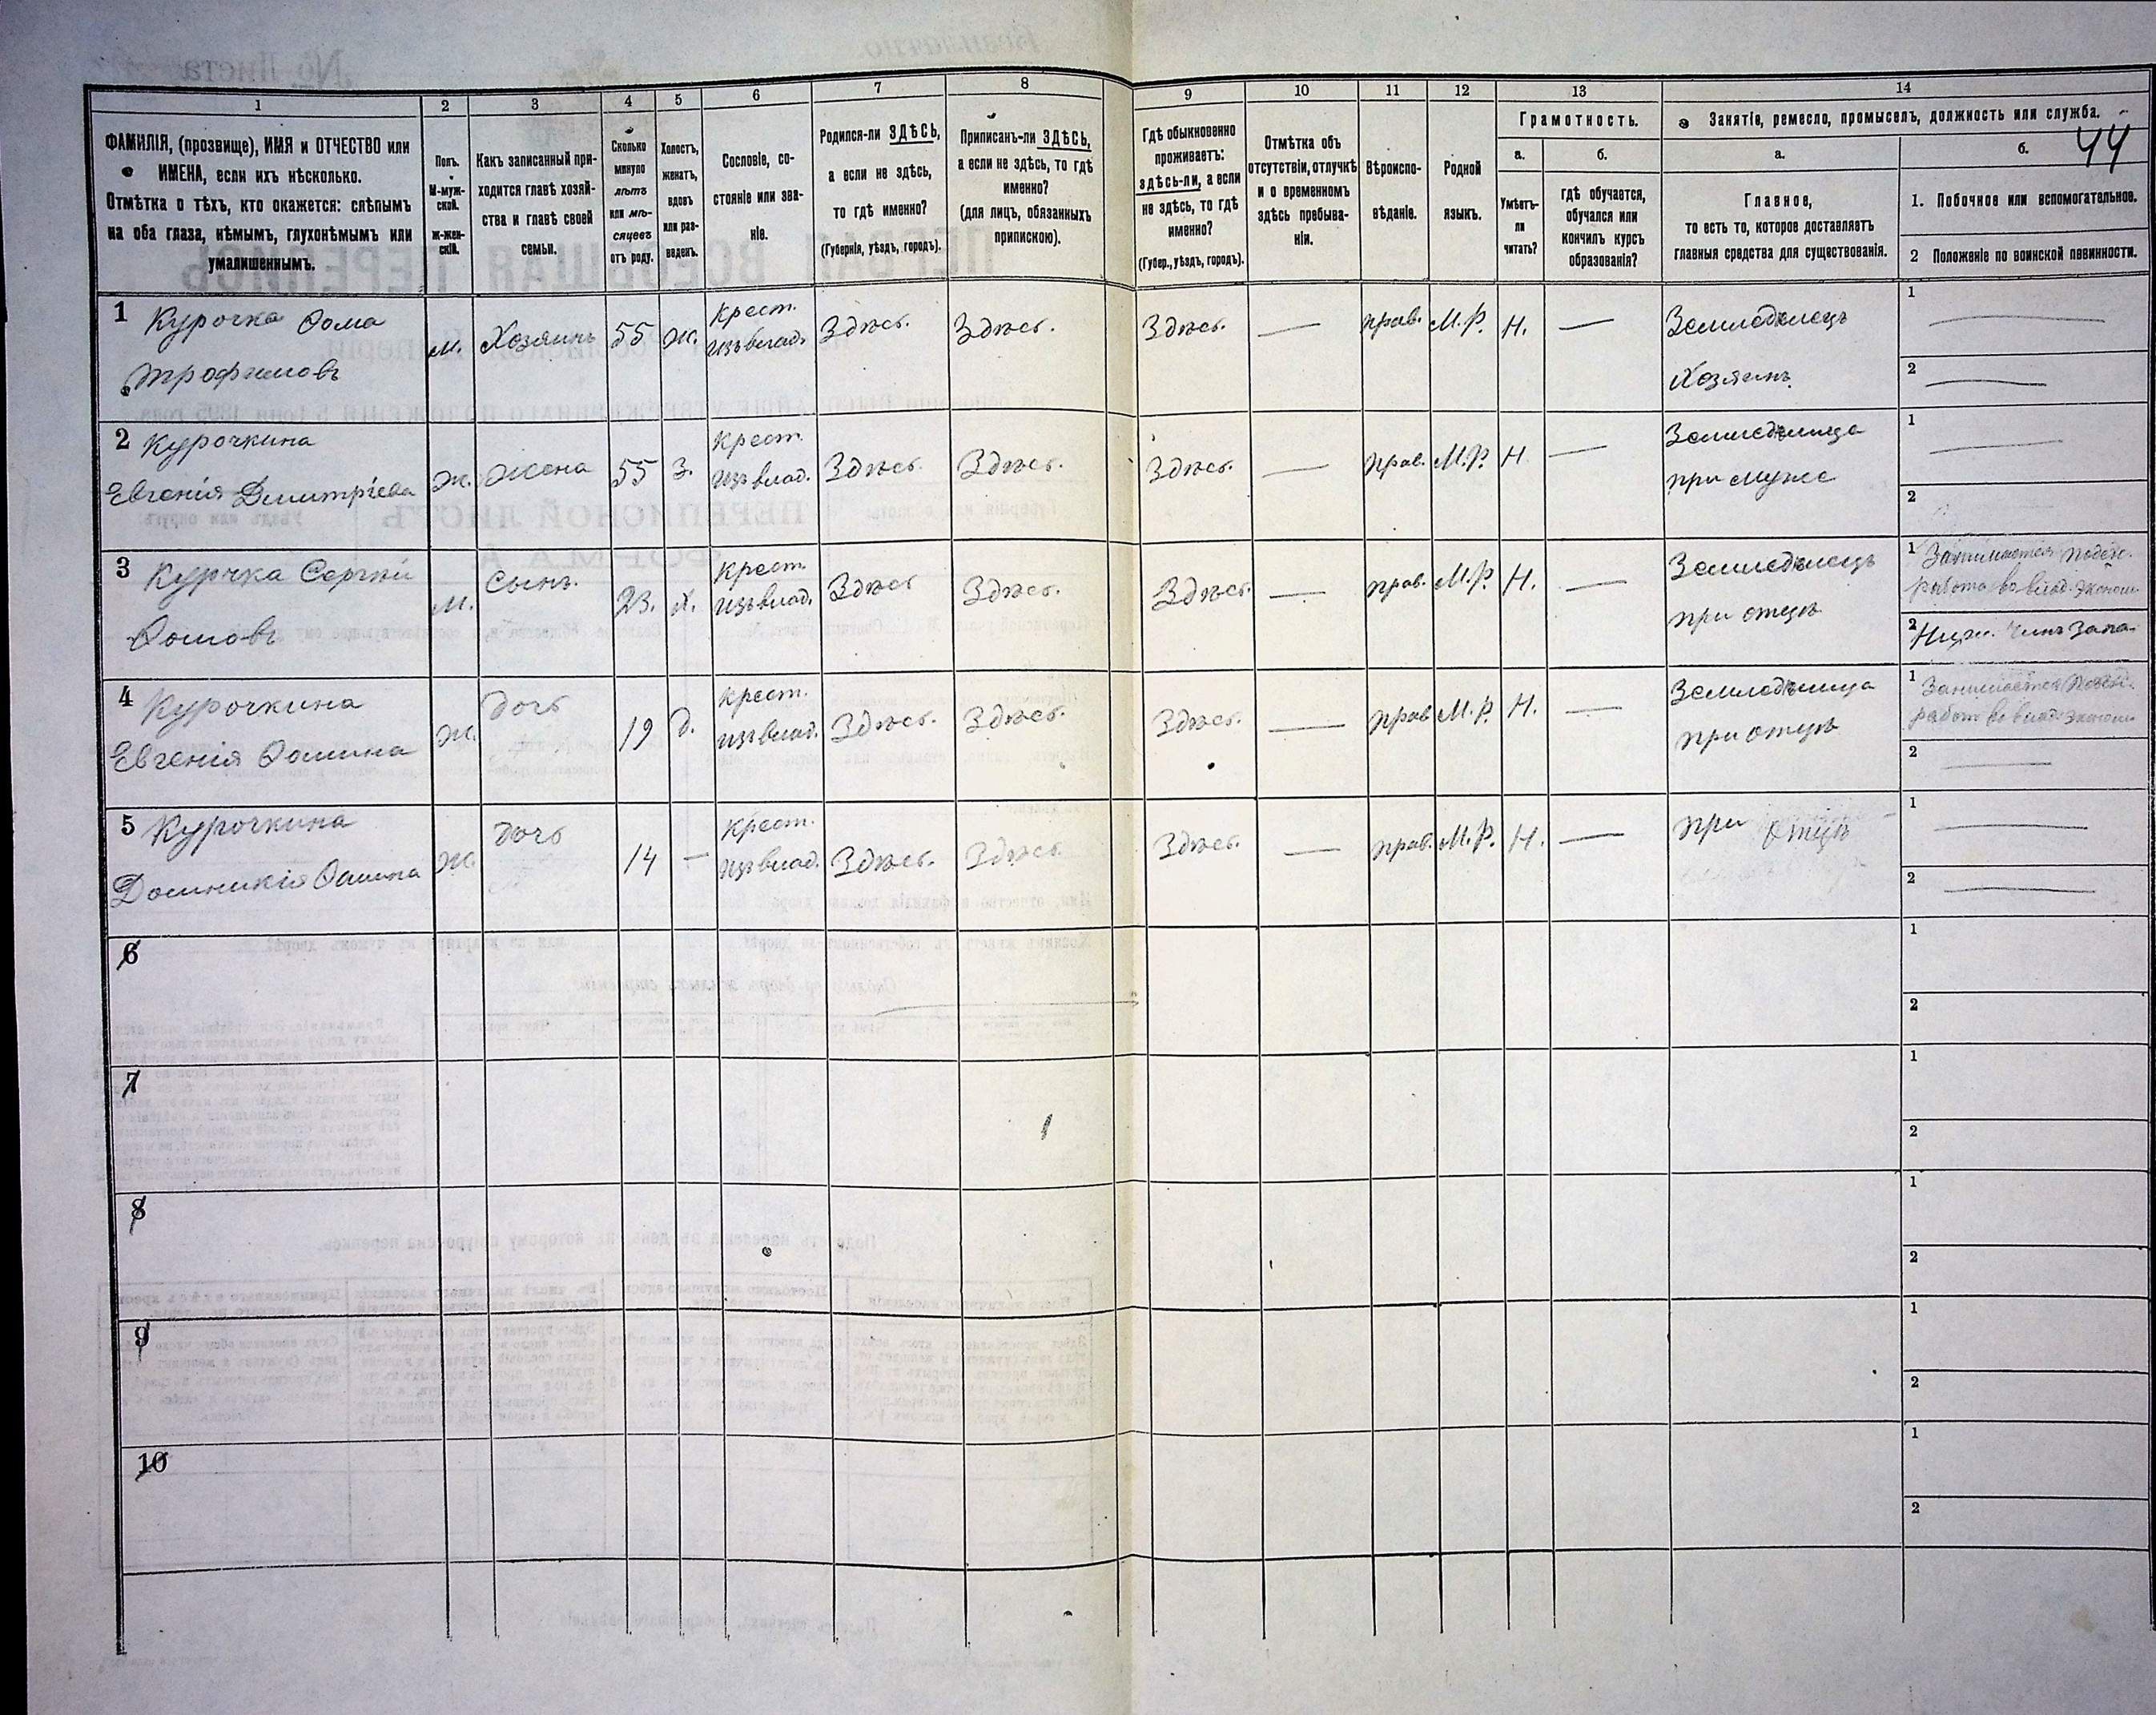 44
1 2 3 4 5 6 7 8 9 10 11 12 13 14
ФАМИЛІЯ, (прозвище), ИМЯ и ОТЧЕСТВО или
ИМЕНА, если ихъ нѣсколько.
Отмѣтка о тѣхъ, кто окажется: слѣпымъ
на оба глаза, нѣмымъ, глухонѣмымъ или
умалишеннымъ.
Полъ.
М-муж-
ской.
ж-жен-
скій.
Какъ записанный при-
ходится главѣ хозяй-
ства и главѣ своей
семьи.
Сколько
минуло
лѣтъ
или мѣ-
сяцевъ
отъ роду.
Холостъ,
женатъ,
вдовъ
или раз-
веденъ.
Сословіе, со-
стояніе или зва-
ніе.
Родился-ли ЗДѢСЬ,
а если не здѣсь,
то гдѣ именно?
(Губернія, уѣздъ, городъ).
Приписанъ-ли ЗДѢСЬ,
а если не здѣсь, то гдѣ
именно?
(для лицъ, обязанныхъ
припискою).
Гдѣ обыкновенно
проживаетъ:
здѣсь-ли, а если
не здѣсь, то гдѣ
именно?
(Губер., уѣздъ, городъ).
Отмѣтка объ
отсутствіи, отлучкѣ
и о временномъ
здѣсь пребыва-
ніи.
Вѣроиспо-
вѣданіе.
Родной
языкъ.
Грамотность.
а.
Умѣетъ-
ли
читать?
б.
Гдѣ обучается,
обучался или
кончилъ курсъ
образованія?
Занятіе, ремесло, промыселъ, должность или служба.
а.
Главное,
то есть то, которое доставляетъ
главныя средства для существованія.
б.
1. Побочное или вспомогательное.
2 Положеніе по воинской повинности.
1 Курочка Ѳома
Трофимовъ
м. Хозяинъ 55 ж.
Крест.
изъ влад.
Здѣсь. Здѣсь. Здѣсь. — прав. М.Р. Н. —
Земледѣлецъ
Хозяинъ
1 —
2 —
2 Курочкина
Евгенія Дмитріева
ж. жена 55 з.
Крест.
изъ влад.
Здѣсь Здѣсь. Здѣсь. — прав. М.Р. Н —
Земледѣлица
при мужѣ
1 —
2
3 Курчка Сергѣй
Ѳомовъ
м. Сынъ. 23. х.
Крест.
изъ влад.
Здѣсь Здѣсь. Здѣсь. — прав. М.Р. Н. —
Земледѣлецъ
при отцѣ
1 Занимается поден.
работа во влад. эконом.
2 Нижн. Чинъ Запа.
4 Курочкина
Евгенія Ѳомина
ж. дочь 19 д.
Крест.
изъ влад.
Здѣсь. Здѣсь. Здѣсь. — прав М.Р. Н. —
Земледѣлица
при отцѣ
1 Занимается поден.
работ во влад. эконом.
2 —
5 Курочкина
Домникія Ѳомина
ж. дочь 14 —
Крест.
изъ влад.
Здѣсь. Здѣсь Здѣсь. — прав. М.Р. Н. —
при отцѣ
1 —
2 —
6
1
2
7
1
2
8
1
2
9
1
2
10
1
2